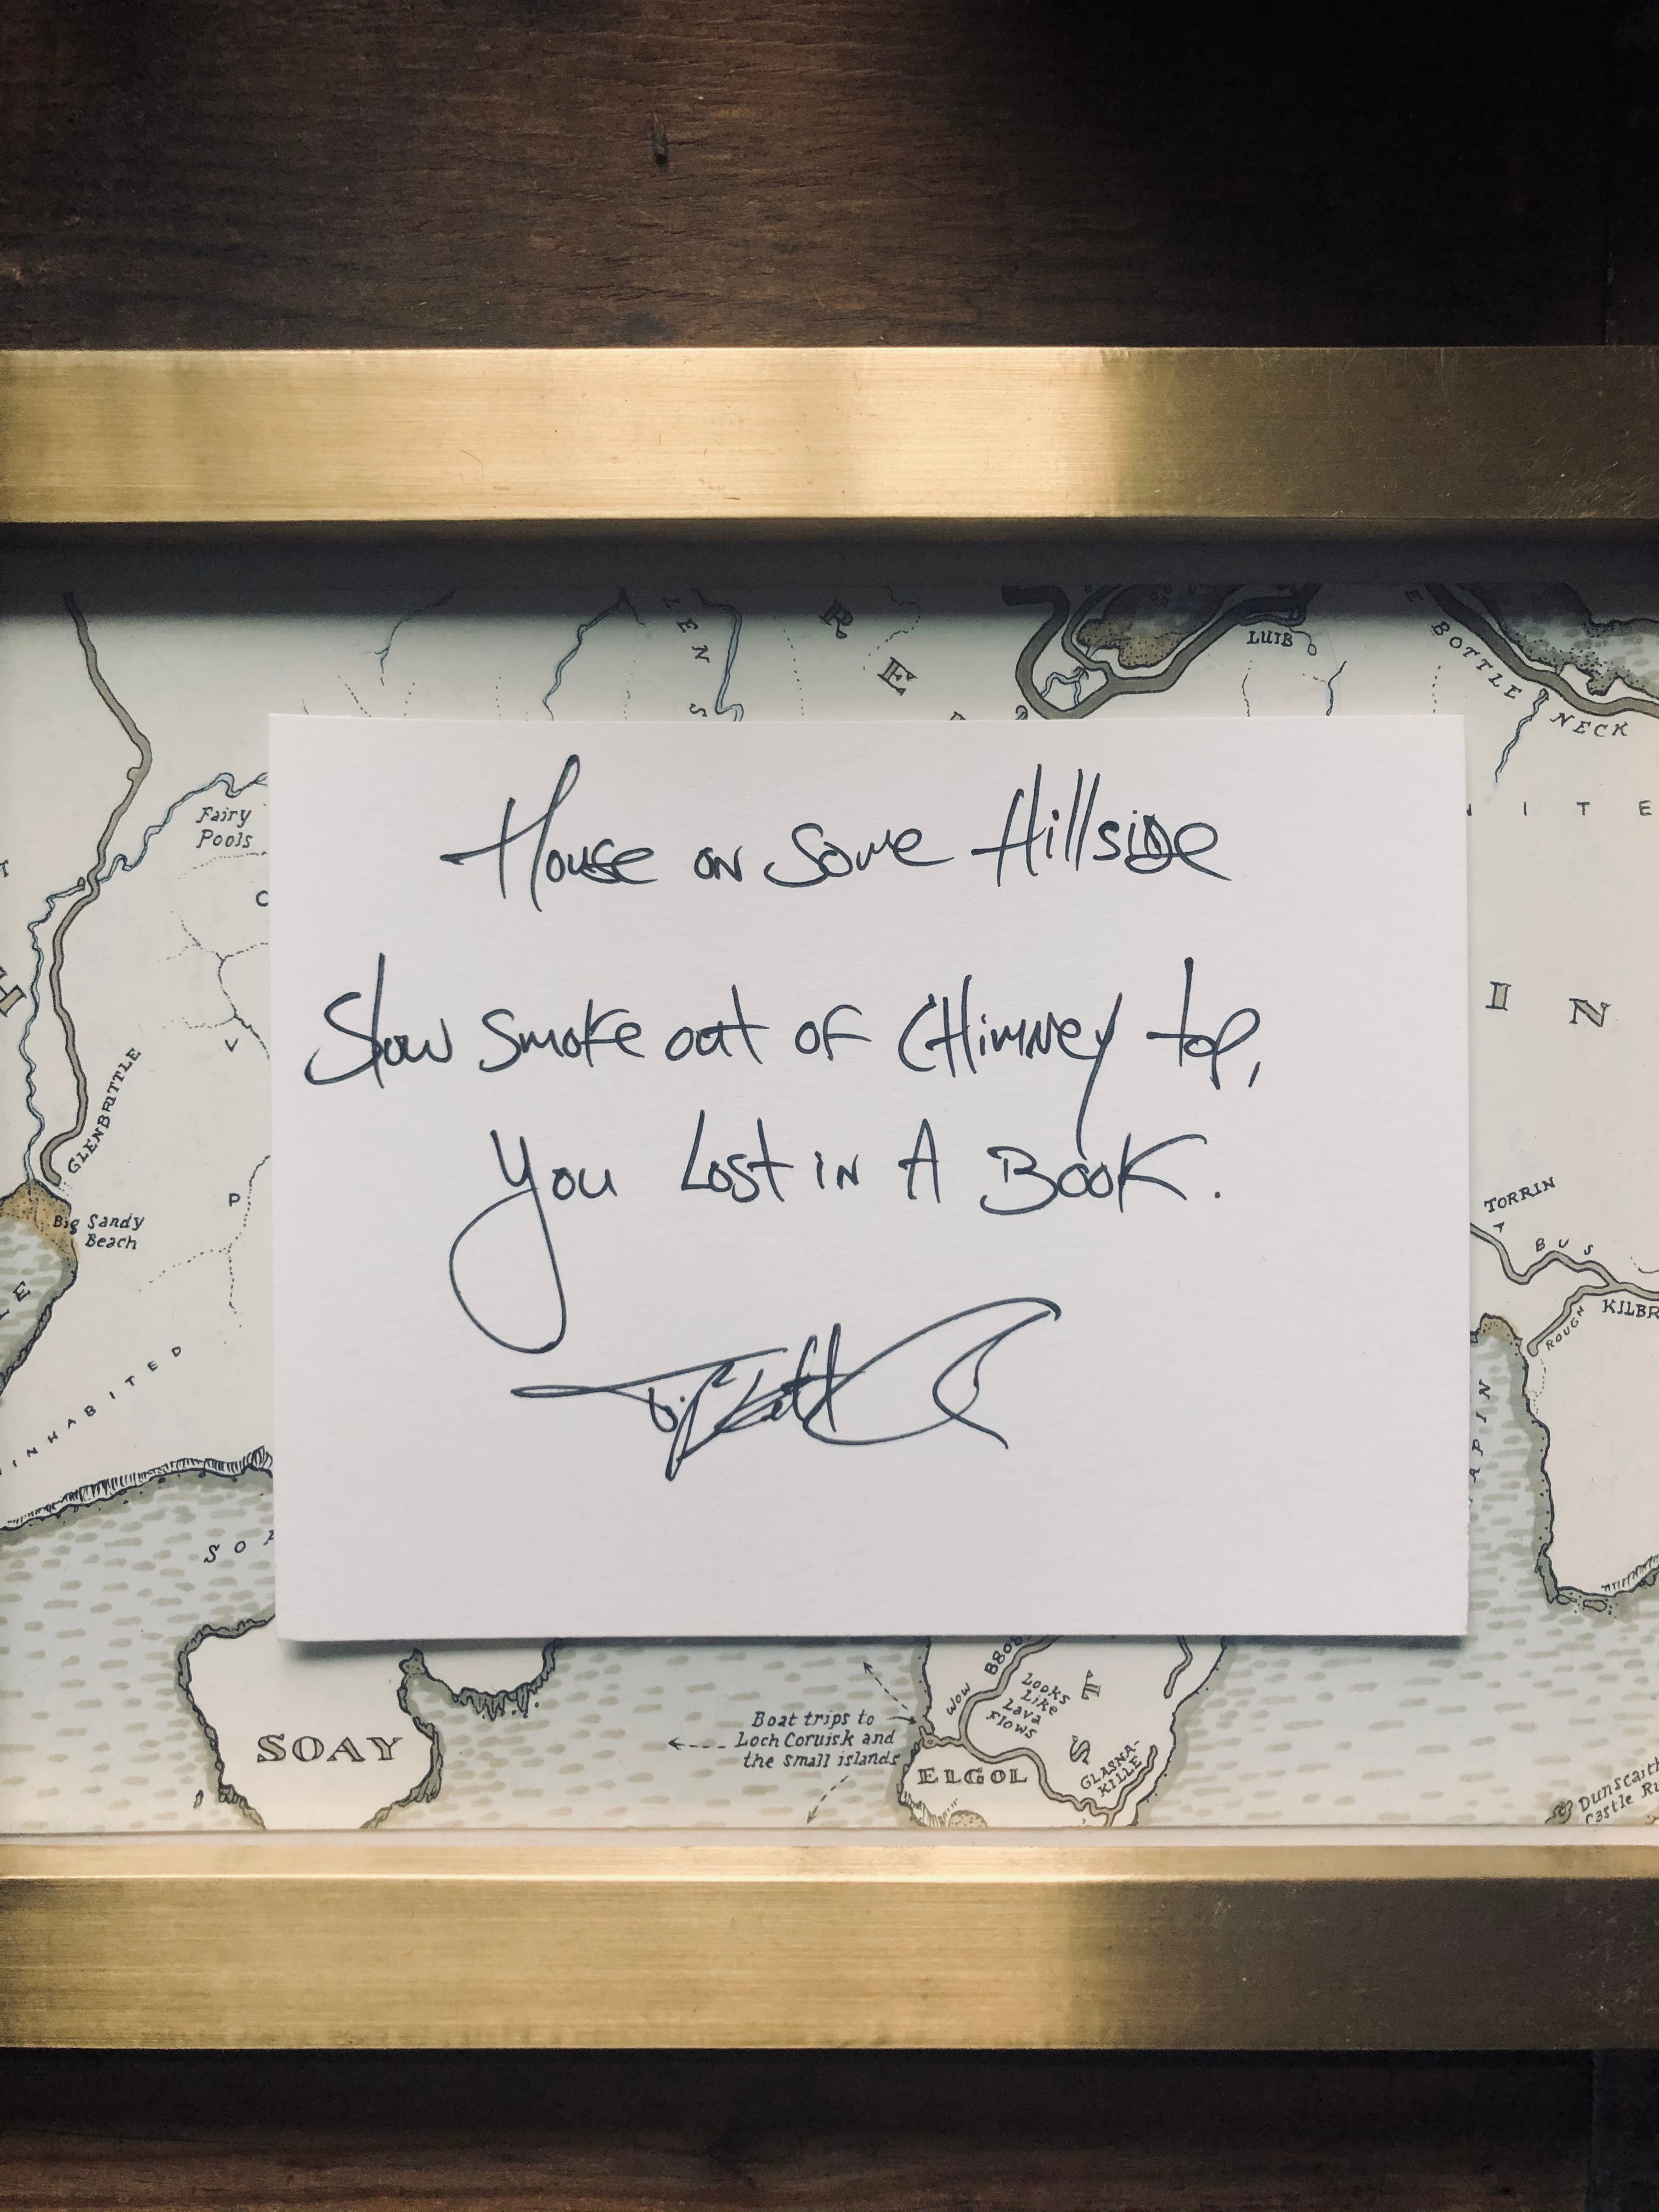 LENS
RE
LUIB
BOTTLE NECK
Fairy
Pools
House on Some Hillside
Slow Smoke out of CHimney top,
You Lost in A Book.
I N
GLENBRITTLE
Big Sandy
Beach
TORRIN
BUS
ROUGH
INHABITED
SOAY
Boat trips to
Loch Coruisk and
the small islands
WOW
Looks
Like
Lava
Flows
ELGOL
GLASNA-
KILLE
Dunscaith
Castle